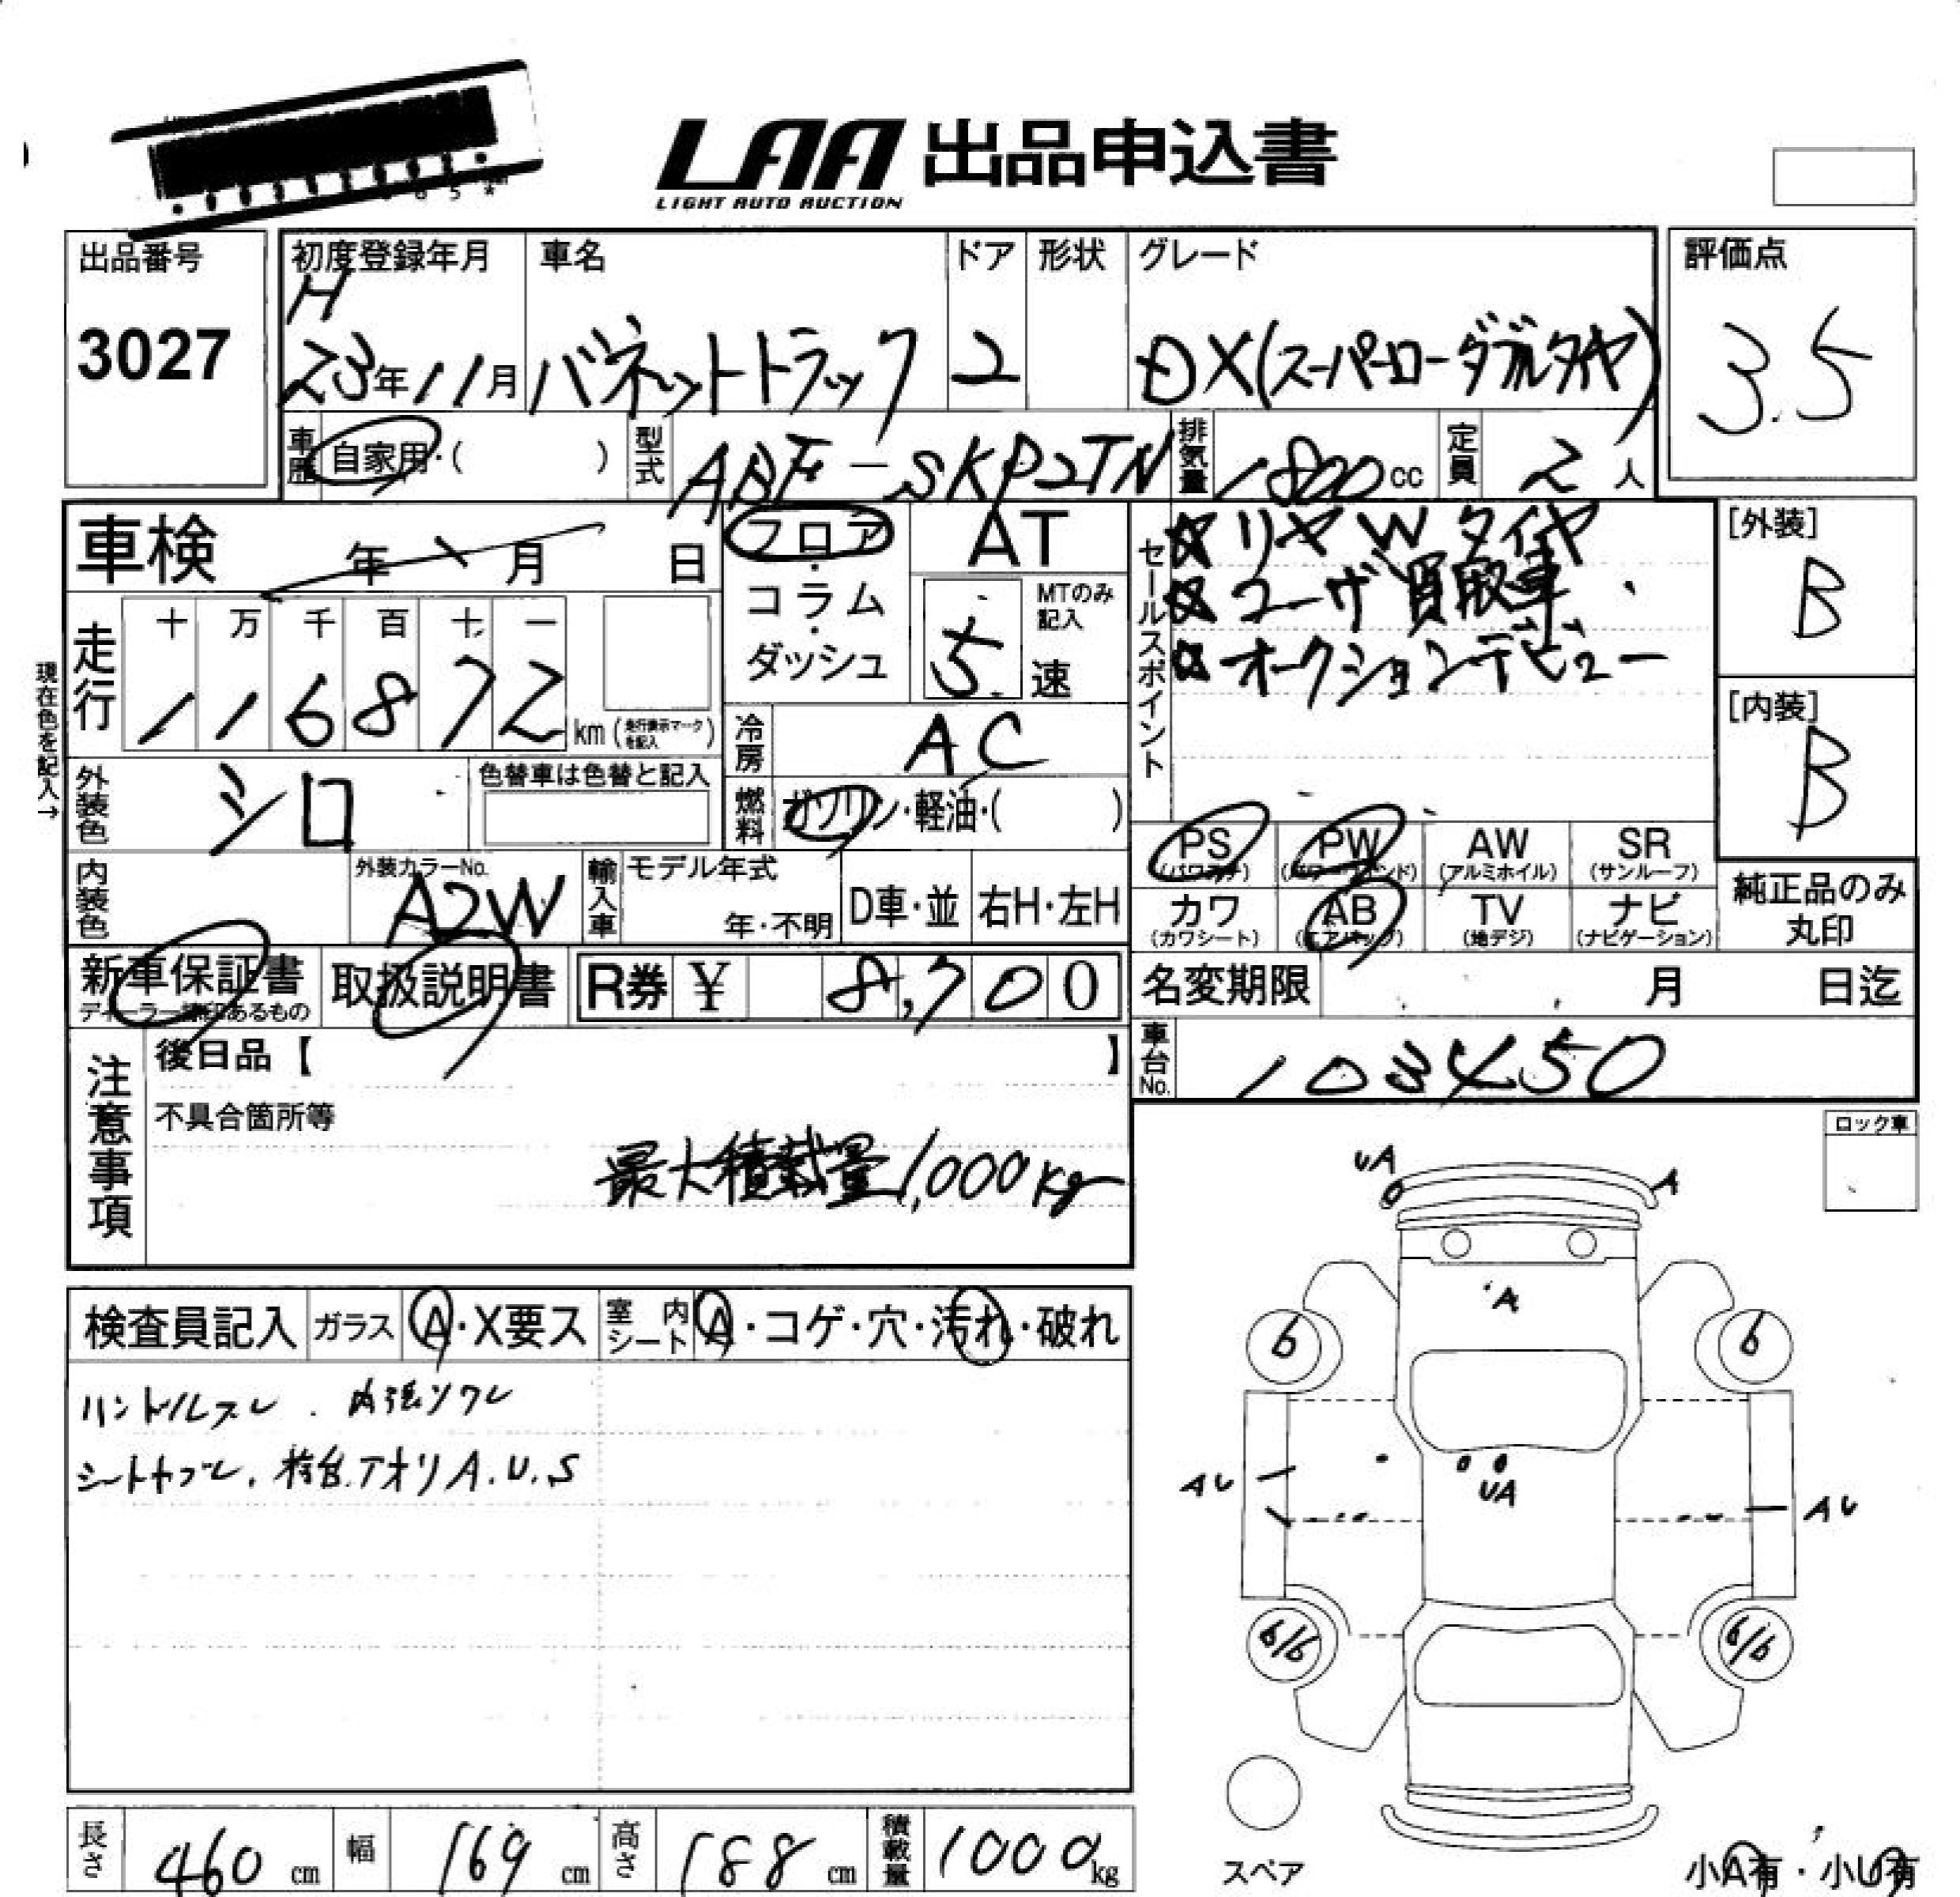 LAA 出品申込書
LIGHT AUTO AUCTION
出品番号
3027
初度登録年月
H
23年11月
車名
バネットトラック
ドア
2
形状
グレード
DX(スーパーローダブルタイヤ)
評価点
3.5
車歴 自家用・( )
型式 ABF-SKP2TN
排気量 1800cc
定員 2人
車検 年 月 日
走行 十 万 千 百 十 一
116872 km (走行表示マークを記入)
現在色を記入→
フロア・コラム・ダッシュ
AT
MTのみ記入
5速
冷房 AC
燃料 ガソリン・軽油・( )
セールスポイント
☆リヤWタイヤ
☆ユーザ買取車
☆オークションデビュー
[外装]
B
[内装]
B
外装色 シロ
色替車は色替と記入
内装色
外装カラーNo.
A2W
輸入車
モデル年式
年・不明
D車・並
右H・左H
PS (パワステ)
PW (パワーウインド)
AW (アルミホイル)
SR (サンルーフ)
カワ (カワシート)
AB (エアバック)
TV (地デジ)
ナビ (ナビゲーション)
純正品のみ丸印
新車保証書
ディーラー捺印あるもの
取扱説明書
R券 ¥ 8,700
名変期限 月 日迄
車台No. 103450
注意事項
後日品【 】
不具合箇所等
最大積載量1,000kg
ロック車
検査員記入
ガラス A・X要ス
室内シート A・コゲ・穴・汚れ・破れ
ハンドルスレ. 内張ソクレ
シートヤブレ. 荷台.アオリA.U.S
UA
A
A
6
6
AU
UA
AU
6/6
6/6
スペア
小A有・小U有
長さ 460 cm
幅 169 cm
高さ 188 cm
積載量 1000kg